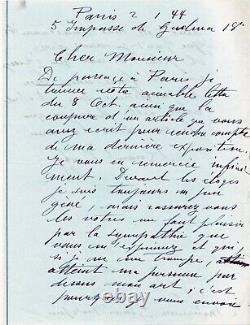 Paris 2 1 44
5 Impasse de Guelma 18e
Cher Monsieur
De passage à Paris je
trouve votre aimable lettre
du 8 Oct. ainsi que la
coupure d'un article que vous
avez écrit pour rendre compte
de ma dernière exposition.
Je vous en remercie infini
ment. Devant les éloges
je suis toujours un peu
gêné, mais rassurez vous
les vôtres me font plaisir
par la sympathie que
vous m'exprimez et qui,
si je ne me trompe,
atteint ma personne par
dessus mon art; c'est
pourquoi je vous envoie